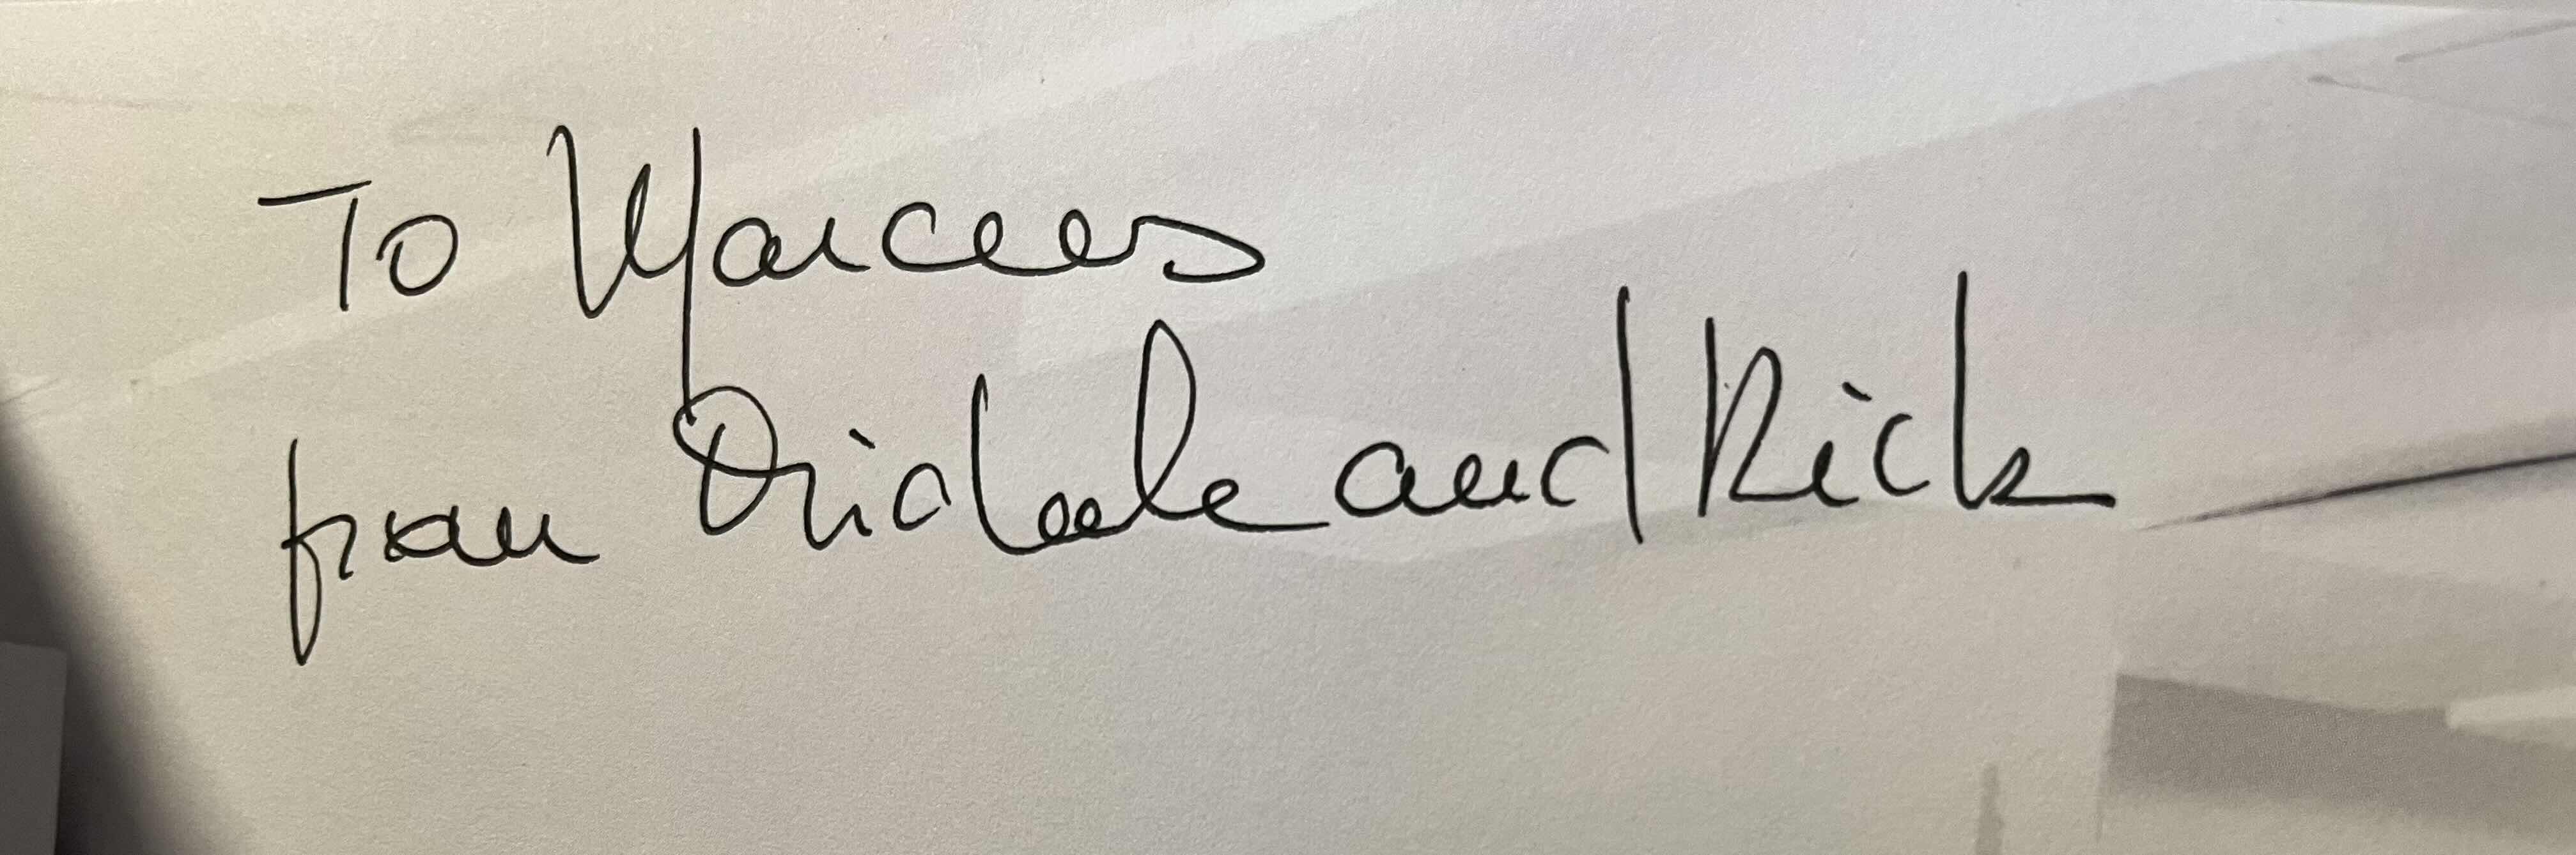 To Marcus
from Michele and Rick